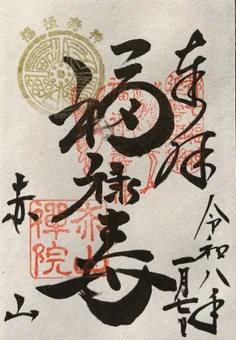 奉拝
令和八年
一月七日
福禄寿
赤山
赤山
禅院